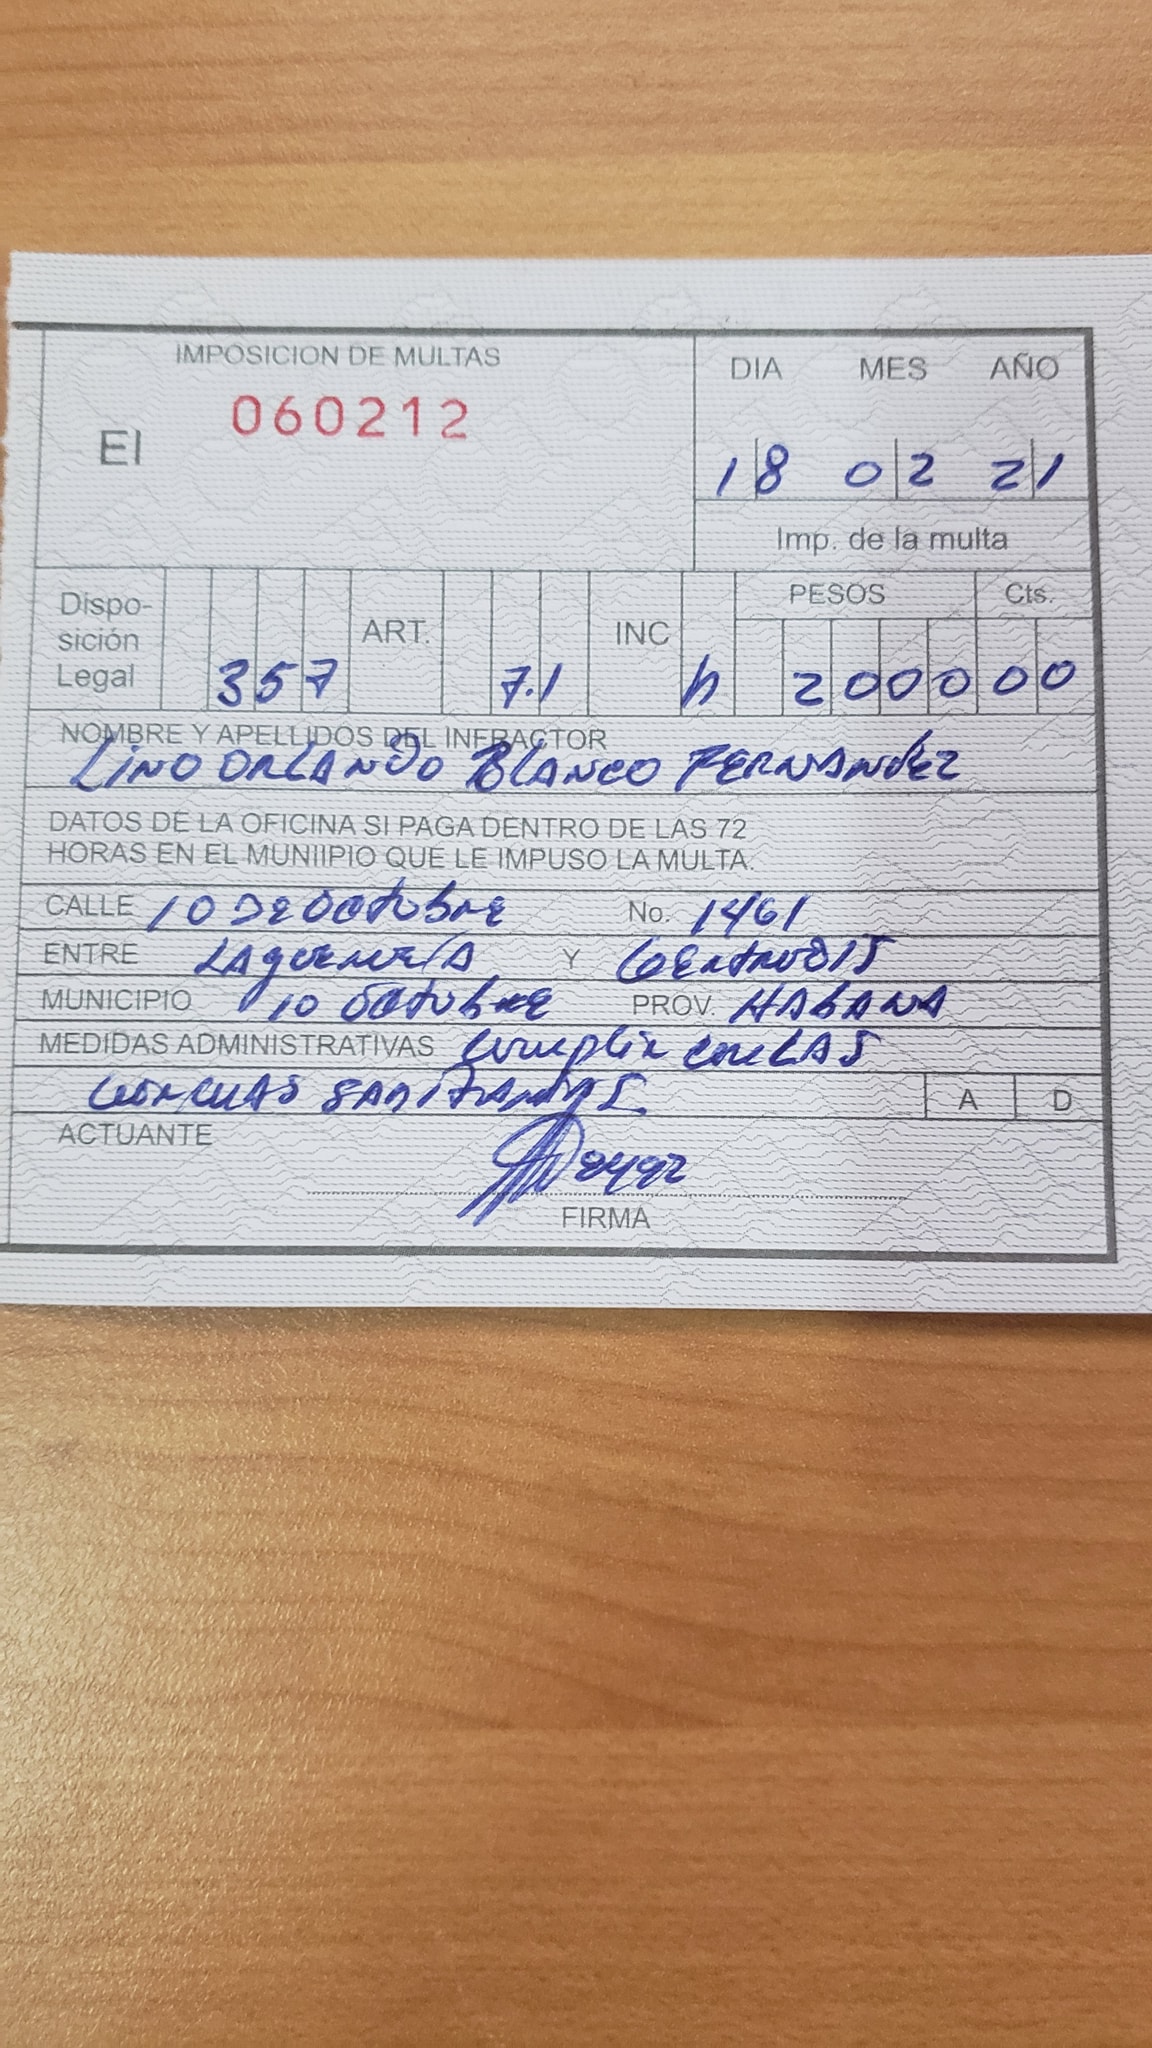 IMPOSICION DE MULTAS
DIA MES AÑO
EI 060212
18 02 21
Imp. de la multa
Dispo-
sición
Legal 357 ART. 7.1 INC h PESOS Cts.
2000 00
NOMBRE Y APELLIDOS DEL INFRACTOR
LINO ORLANDO BLANCO FERNANDEZ
DATOS DE LA OFICINA SI PAGA DENTRO DE LAS 72
HORAS EN EL MUNIIPIO QUE LE IMPUSO LA MULTA.
CALLE 10 DE OCTUBRE No. 1461
ENTRE LAGUERUELA Y GERTRUDIS
MUNICIPIO 10 OCTUBRE PROV. HABANA
MEDIDAS ADMINISTRATIVAS Cumplir con LAS
SANITARIAS
A D
ACTUANTE
FIRMA